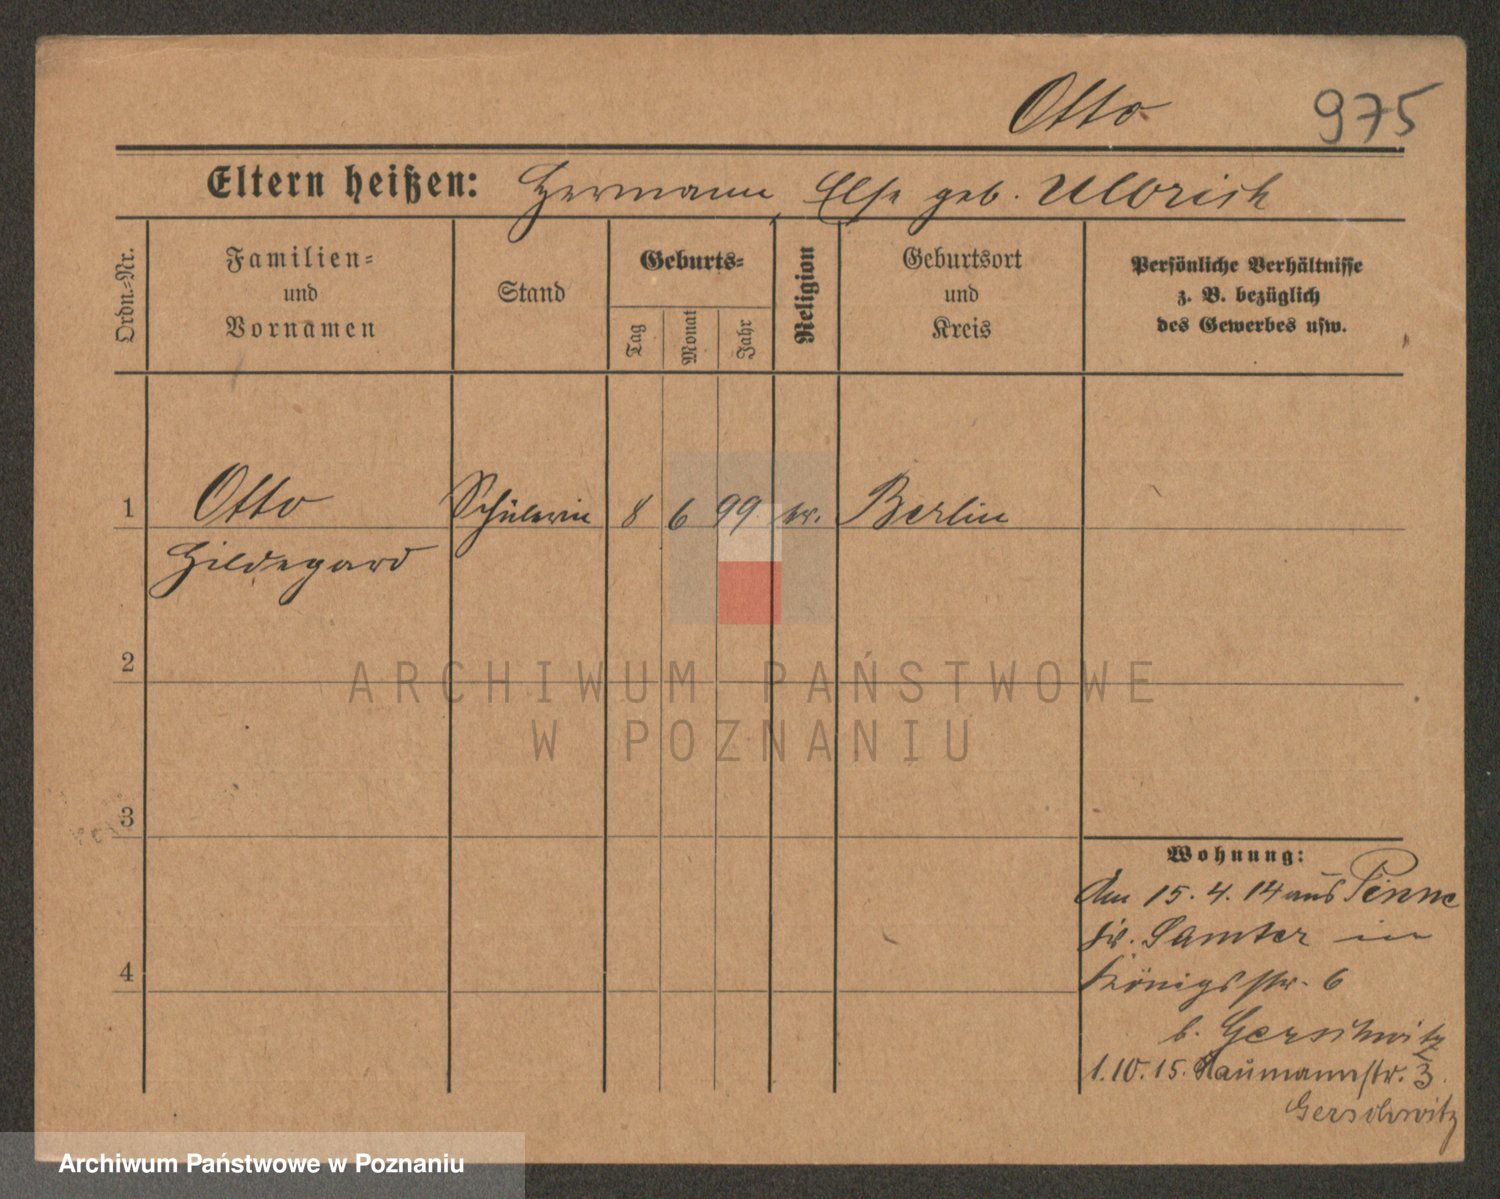 Otto 975
Eltern heißen: Hermann, Else geb. Ulbrich
Ordn.-Nr.
Familien-
und
Vornamen
Stand
Geburts-
Tag
Monat
Jahr
Religion
Geburtsort
und
Kreis
Persönliche Verhältnisse
z. B. bezüglich
des Gewerbes usw.
1 Otto Schülerin 8 6 99 ev. Berlin
Hildegard
2
3
4
Wohnung:
Am 15.4.14 aus Pinne
Kr. Samter in
Königsstr. 6
b. Gerschwitz
1.10.15. Naumannstr. 3.
Gerschwitz
ARCHIWUM PAŃSTWOWE
W POZNANIU
Archiwum Państwowe w Poznaniu